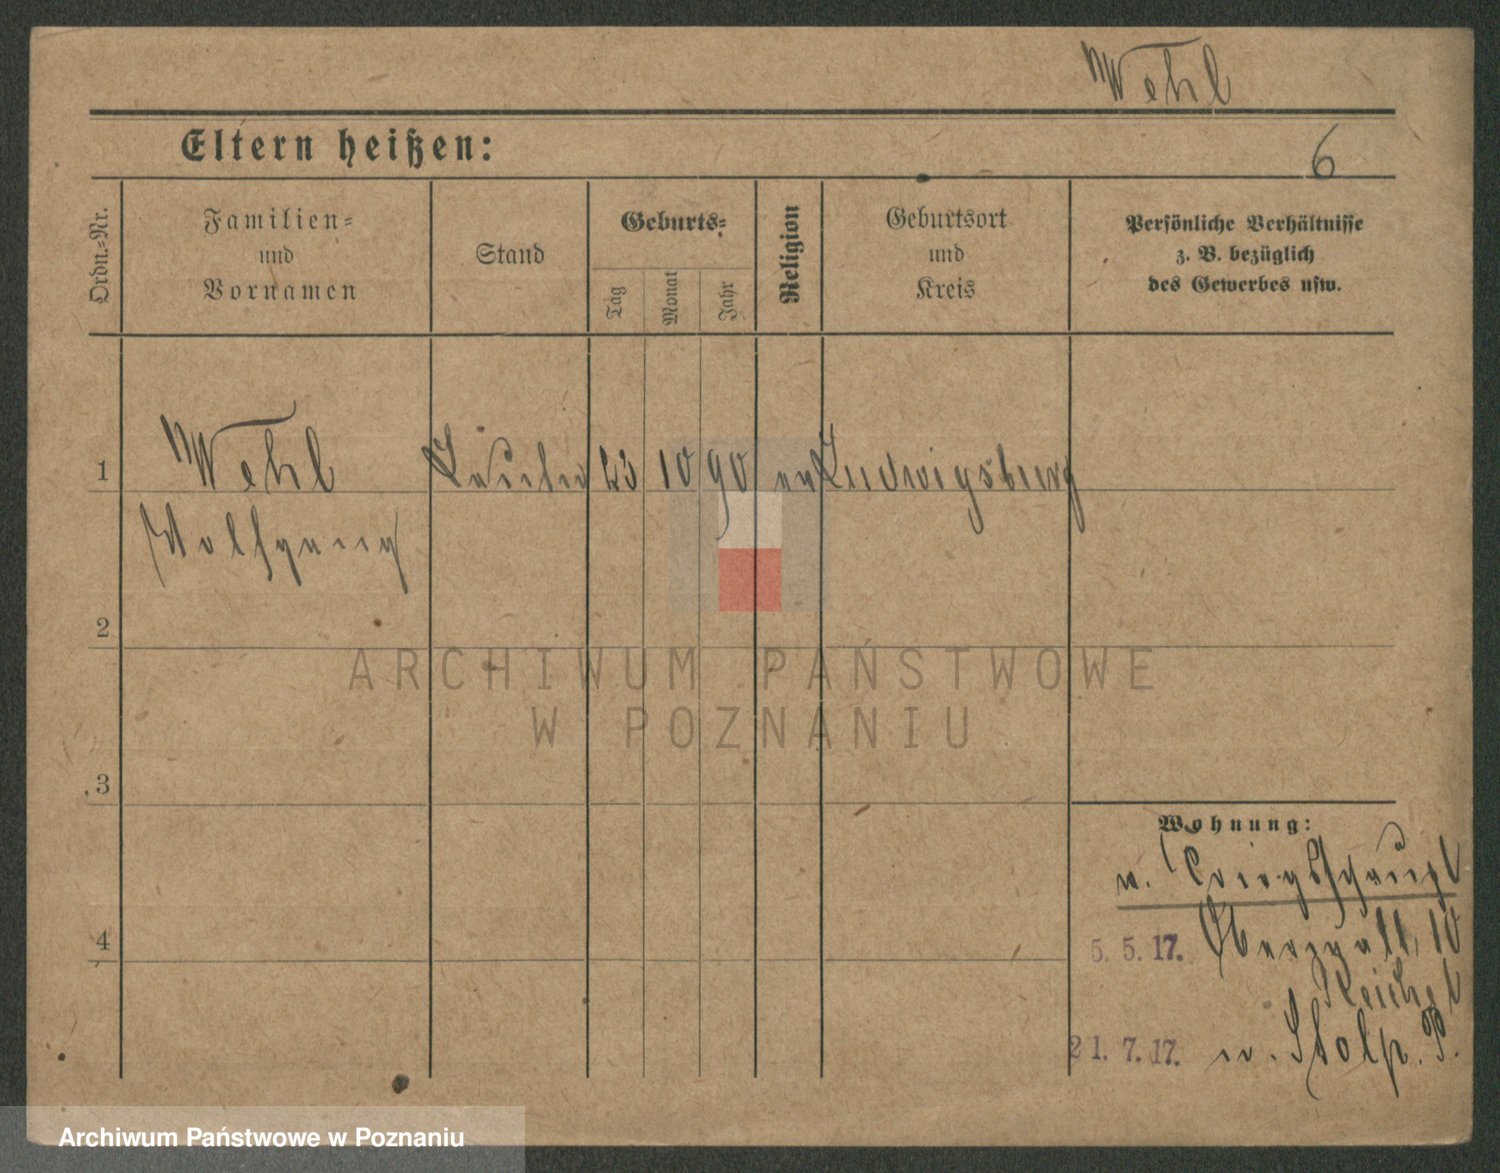 Wehl
Eltern heißen:
6
Ordn.=Nr.
Familien=
und
Vornamen
Stand
Geburts=
Tag
Monat
Jahr
Religion
Geburtsort
und
Kreis
Persönliche Verhältnisse
z. B. bezüglich
des Gewerbes usw.
1
Wehl
23
10
90
ev
Ludwigsburg
Wolfgang
2
ARCHIWUM PAŃSTWOWE
W POZNANIU
3
Wohnung:
v.
4
5. 5. 17.
10
Reichel
21. 7. 17.
n. Stolp. P.
Archiwum Państwowe w Poznaniu